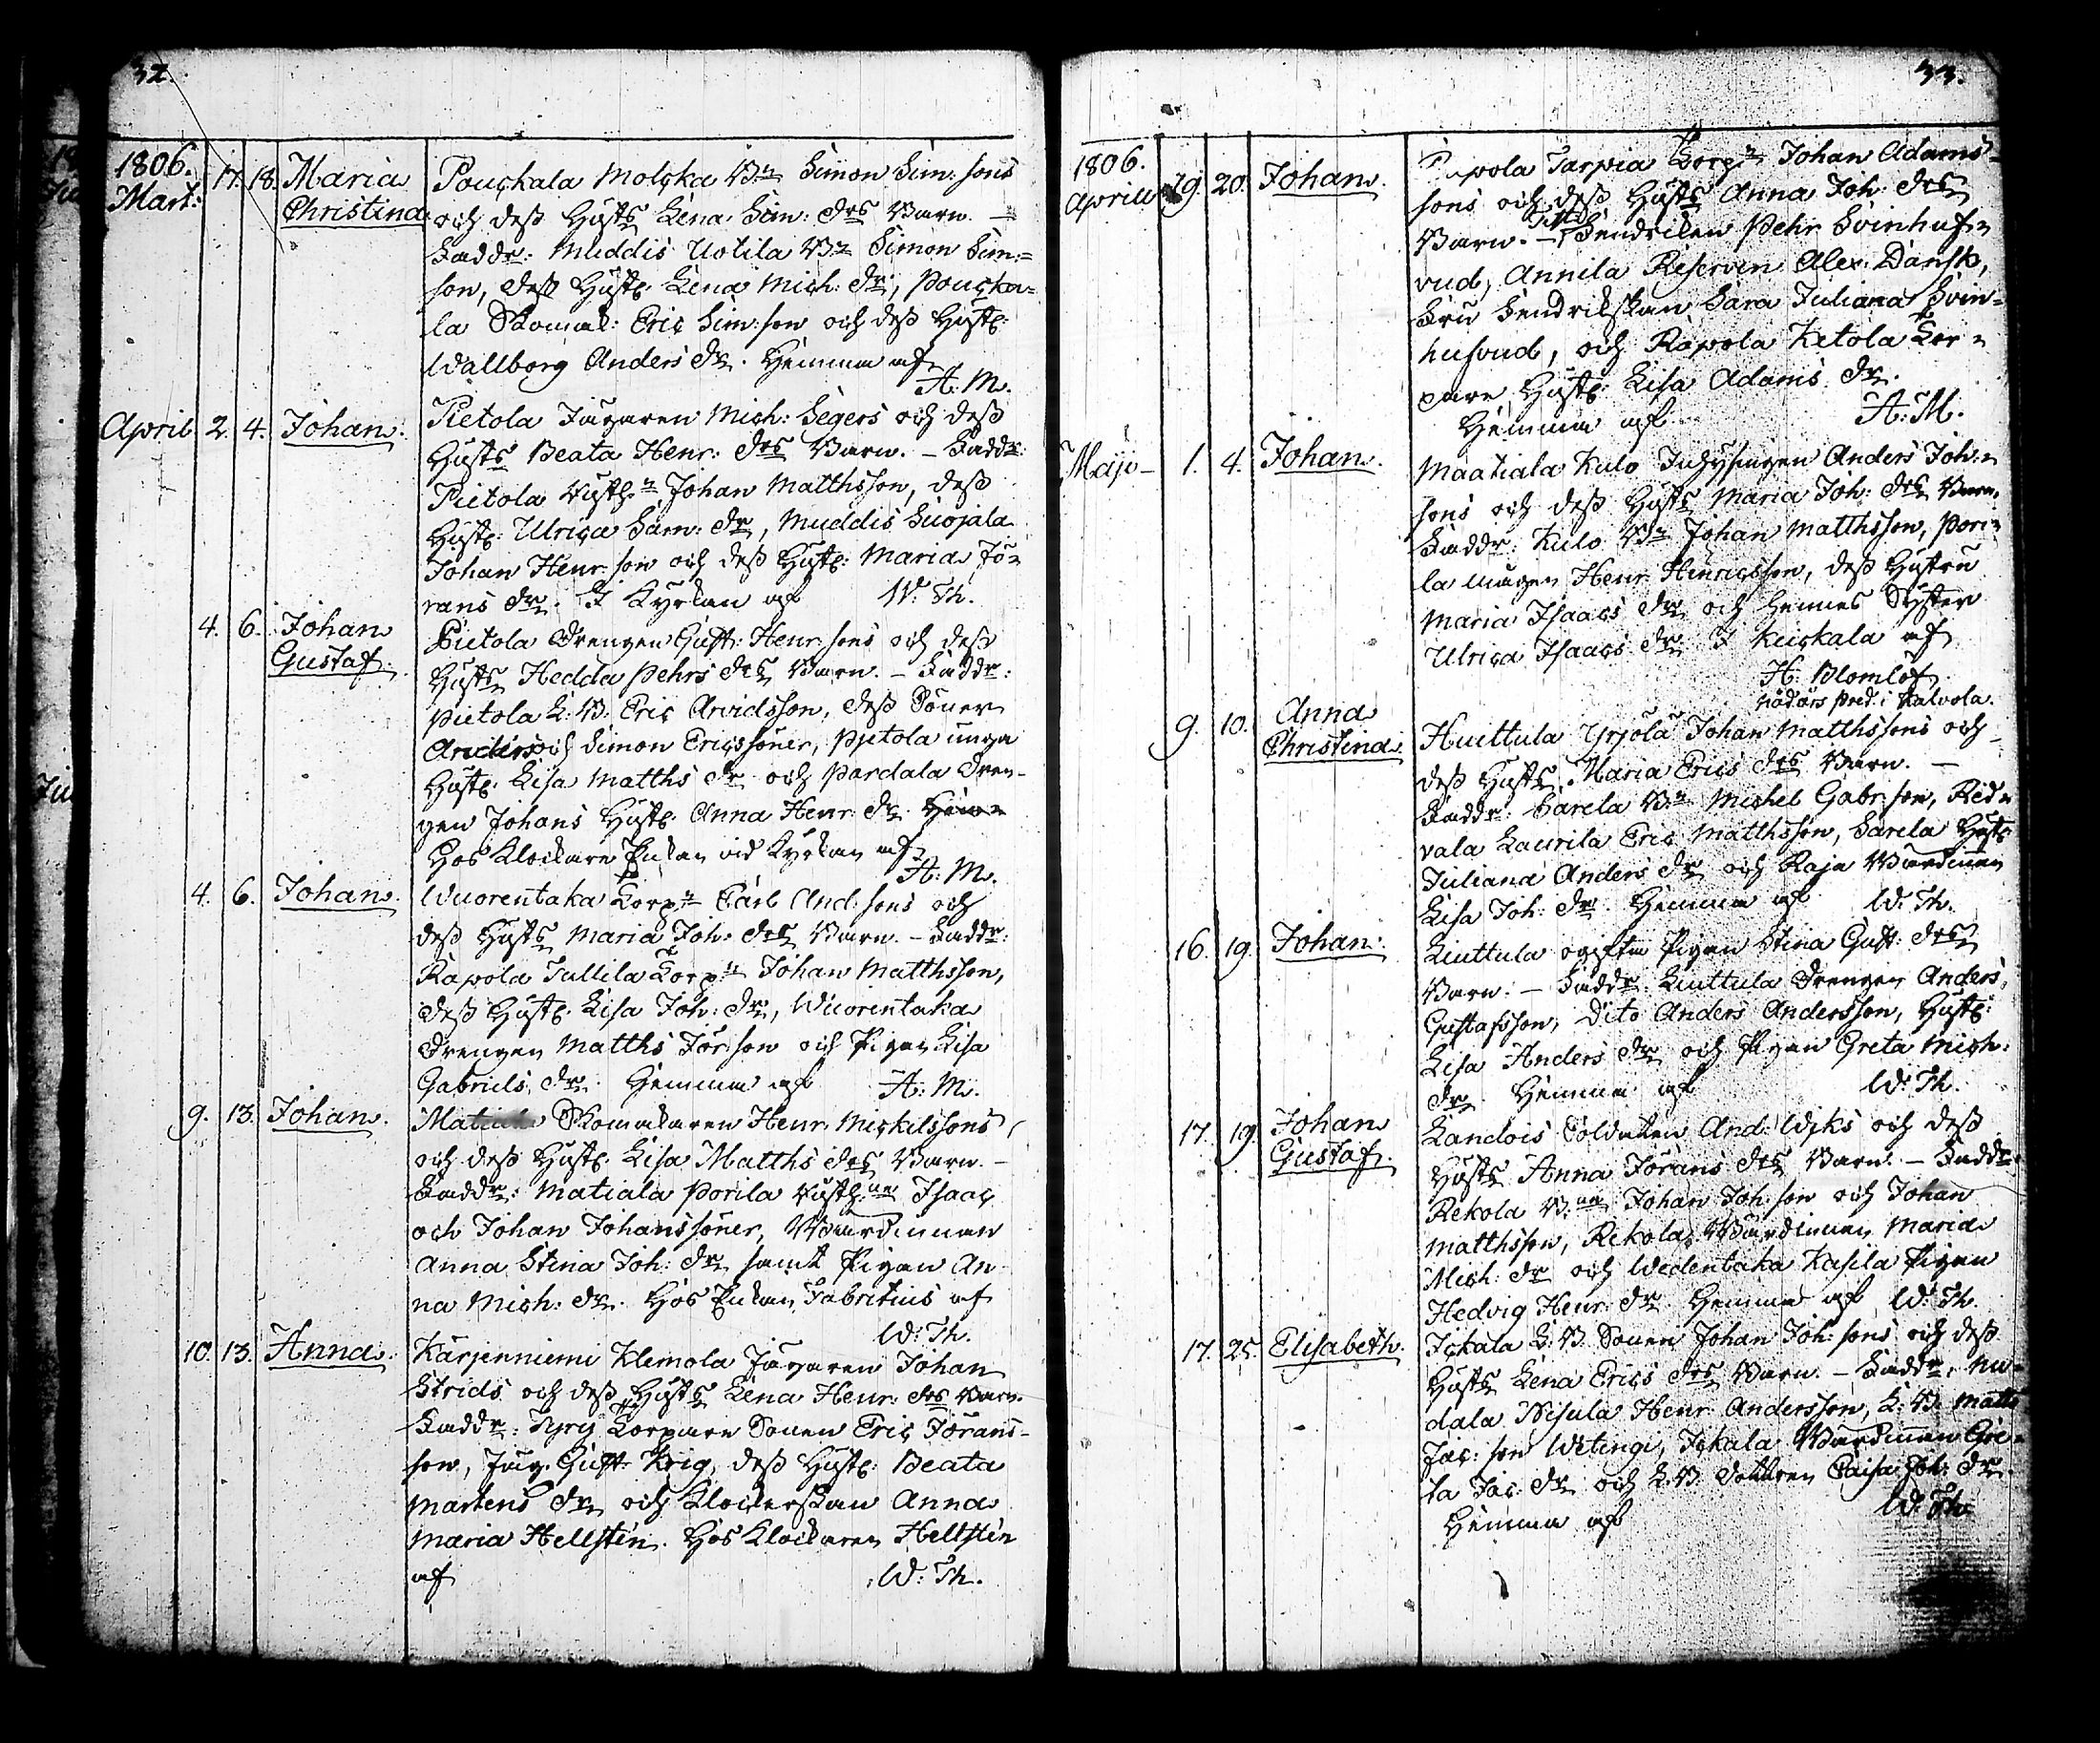 32.
1806. Mart: 17. 18. Maria Christina
Pouckala Molcka B:n Simon Sim: sons
och dess Hust:s Lena Sim: d:rs Barn. —
Faddr: Muddis Uotila B:n Simon Sim:=
son, dess Hust: Lena Mich: d:r, Poucka=
la Skomak: Eric Sim: son och dess Hust:
Wallborg Anders d:r. Hemma af
A: M.
April 2. 4. Johan.
Pietola Jägaren Mich: Segers och dess
Hust:s Beata Henr: d:rs Barn. – Faddr:
Pietola Rusth:n Johan Matthsson, dess
Hust: Ulrica Sam: d:r, Muddis Suojala
Johan Henr: son och dess Hust: Maria Jö=
rans d:r. I Kyrkan af W: Th.
4. 6. Johan Gustaf.
Pietola Drengen Gust: Henr: sons och dess
Hust:s Hedda Pehrs d:rs Barn. – Faddr:
Pietola L: B: Eric Arvidsson, dess Söner
Anders och Simon Ericssöner, Pietola unga
Hust: Lisa Matths d:r och Pardala Dren-
gen Johans Hust: Anna Henr: d:r
Hos Klockare Enkan vid Kyrkan af
A: M.
4. 6. Johan.
Wuorentaka Torp:n Carl And: sons och
dess Hust:s Maria Joh: d:rs Barn. – Faddr:
Rapola Jullila Torp:n Johan Matthsson,
dess Hust: Lisa Joh: d:r, Wuorentaka
Drengen Matths Jör: son och Pigan Lisa
Gabriels d:r. Hemma af A: M.
9. 13. Johan.
Skomakaren Henr: Mickilssons
och dess Hust: Lisa Matths d:rs Barn. –
Faddr: Matiala Porila Rusth:ne Isaac
och Johan Johanssöner, Wärdinnan
Anna Stina Joh: d:r samt Pigan An
na Mich: d:r. Hos Enkan Fabritius af
W: Th.
10. 13. Anna.
Kärjenniemi Klemola Jägaren Johan
Strids och dess Hust:s Lena Henr: d:rs Barn.
Faddr: Tyry Torpare Sonen Eric Jörans-
son, Jäg: Gust: Krig, dess Hust: Beata
Martens d:r och Klockerskan Anna
Maria Hellsten. Hos Klockaren Hellsten
af W: Th.
33.
1806. Aprill 19. 20. Johan.
Rapola Tarpia Torp:n Johan Adams-
sons och dess Hust:s Anna Joh: d:rs
Barn. – Fendriken Pehr Svinhuf=
vud, Annila Reserven Alex: Dansk,
Fru Fendrikskan Sara Juliana Svin=
hufvud, och Rapola Ketola Tor=
pare Hust: Lisa Adams d:r.
Hemma af A: M.
Majo – 1. 4. Johan.
Maatiala Kulo Inhysingen Anders Joh:=
sons och dess Hust:s Maria Joh: d:rs Barn.
Faddr: Kulo B:n Johan Matthsson, Pori=
la Mågen Henr: Henricsson, dess Hustru
Maria Isaacs d:r och hennes Syster
Ulrica Isaacs d:r I Kuckala af
H: Blomlöf
nödårs Pred: i Kalvola.
9. 10. Anna Christina.
Huittula Yrjölä Johan Matthssons och
dess Hust:s Maria Erics d:rs Barn. —
Faddr: Sarela B:n Michel Gabr: son, Red=
vala Laurila Eric Matthsson, Sarela Hust:
Juliana Anders d:r och Raja Wärdinnan
Lisa Joh: d:r. Hemma af W: Th.
16. 19. Johan.
Liuttula ogifta Pigan Stina Gust: d:rs
Barn. – Faddr: Liuttula Drengen Anders
Gustafsson, Dito Anders Andersson, Hust:
Lisa Anders d:r och Pigan Greta Mich:
d:r. Hemma af W: Th.
17. 19. Johan Gustaf.
Landois Soldaten And: Wiks och dess
Hust:s Anna Jörans d:rs Barn. – Faddr:
Rekola B:ne Johan Joh: son och Johan
Matthsson, Rekola Wärdinnan Maria
Mich: d:r och Wedentaka Kasila Pigan
Hedvig Henr: d:r. Hemma af W: Th.
17. 25. Elisabeth.
Jckala L: B. Sonen Johan Joh: sons och dess
Hust:s Lena Erics d:rs Barn. – Faddr: Nu-
dala Nisula Henr: Andersson, L: B. Matts
Jac: son Wetingi, Jckala Wärdinnan Gre=
ta Jac: d:r och L: B. Dottren Caisa Joh: d:r.
Hemma af W: Th.